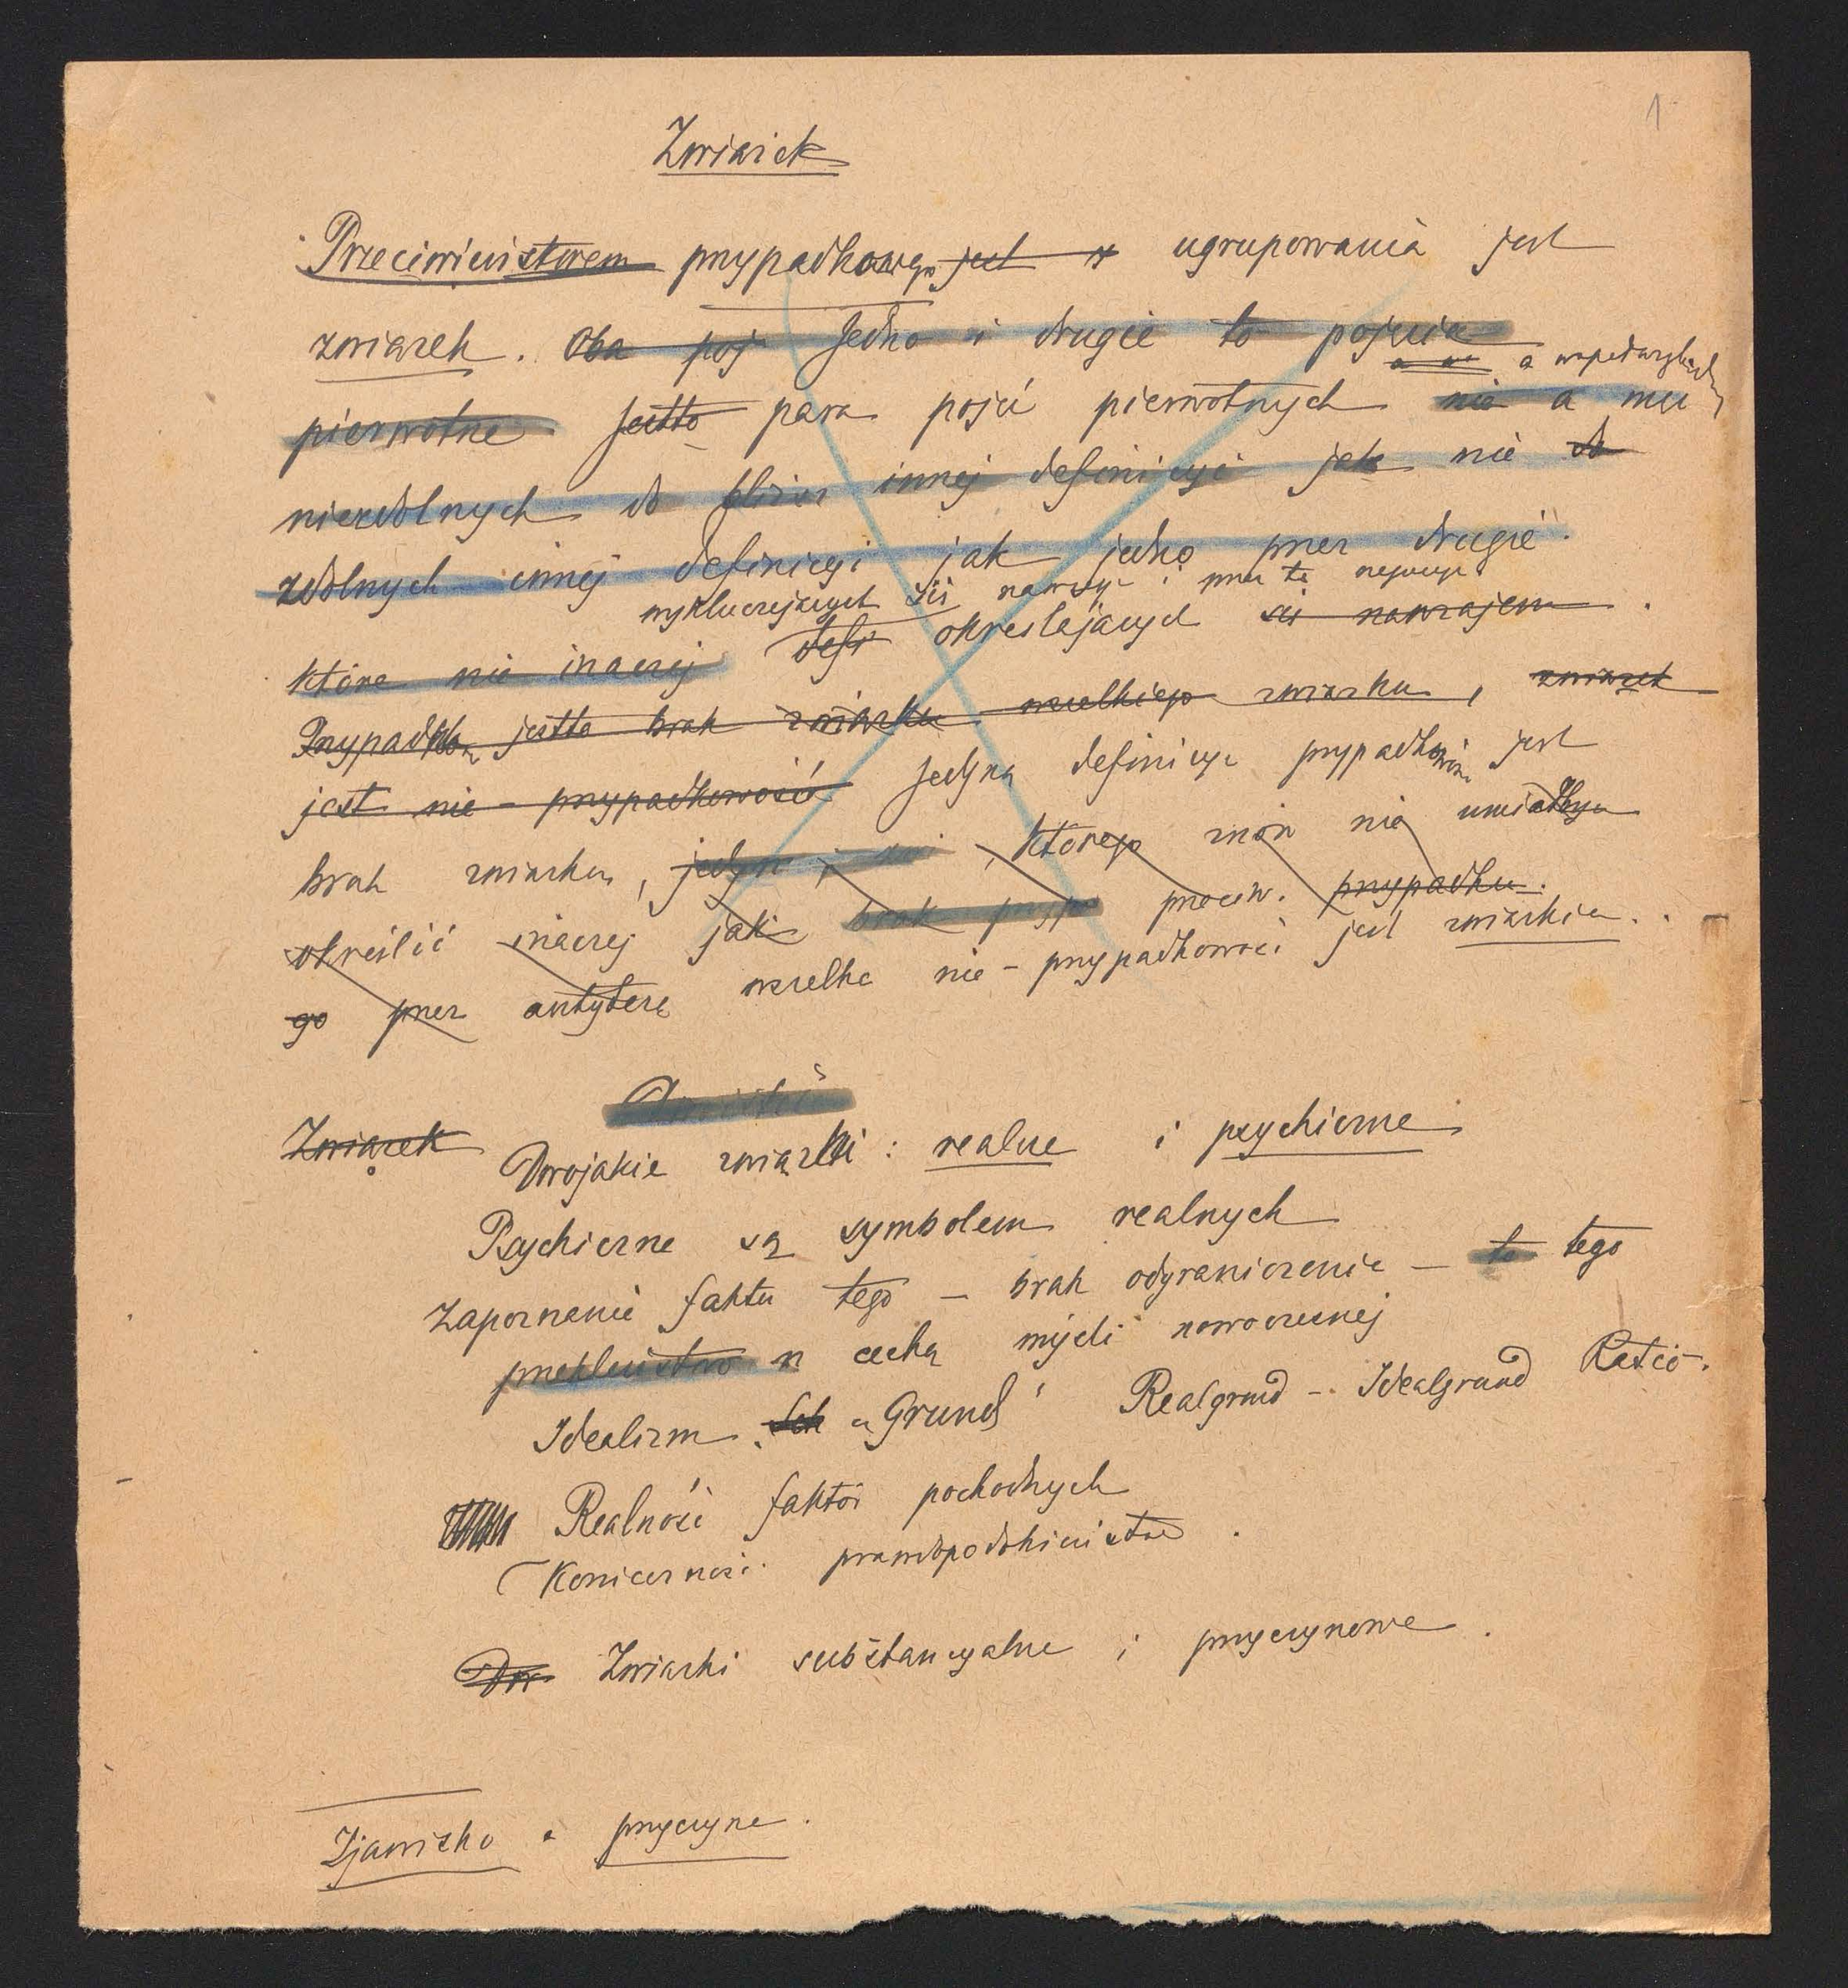 1
Związek
Przeciwieństwem przypadkowego jest z ugrupowania jest
związek. Oba poj Jedno i drugie to pojęcia
a
pierwotne Jestto para pojęć pierwotnych nie a
niezdolnych do innej definicyi jak nie do
zdolnych innej definicyi jak jedno przez drugie.
wykluczających się nawzaj i przez tę negacyę
które nie inaczej defi określających się nawzajem.
Przypadkow jestto brak związku wszelkiego związku, związek
jest nie-przypadkowością Jedyną definicyą przypadkowości jest
brak związku, jedyn i, którego znów nie umiałbym
określić inaczej jak brak przyp przeciw. przypadku.
go przez antytezę wszelka nie-przypadkowość jest związkiem.
Związek Dwojakie związki: realne i psychiczne
Psychiczne są symbolem realnych
Zapoznanie faktu tego — brak odgraniczenia — to tego
przekleństwo n cechą myśli nowoczesnej
Idealizm. Sch „Grund" Realgrund — Idealgrund Ratio.
Realność faktów pochodnych
(Konieczność. prawdopodobieństwo.
Dw Związki substancyalne i przyczynowe.
Zjawisko a przyczyna.